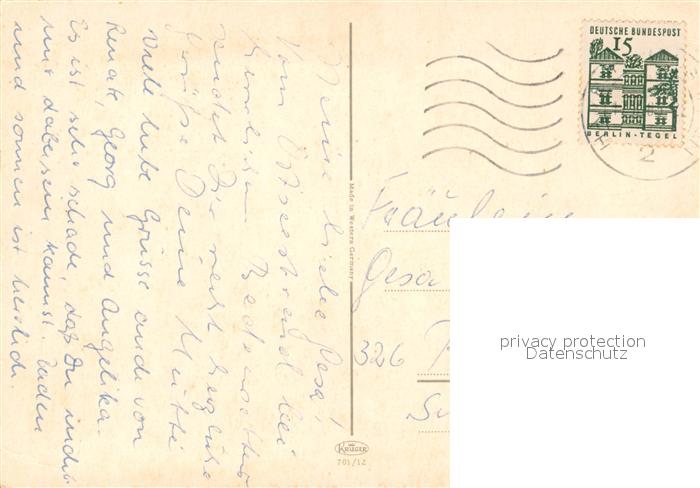 Meine liebe Gesa!
Vom Ostseestrand bei
herrlichem Badewetter
sendet Dir recht herzliche
Grüße Deine Mutti
Viele liebe Grüsse auch von
Renate, Georg und Angelika.
Es ist sehr schade, daß Du nicht
mit dabeisein kannst. Baden
und sonnen ist herrlich.
Made in Western Germany
KRÜGER
701/12
DEUTSCHE BUNDESPOST
15
BERLIN-TEGEL
2
Fräulein
Gesa
326
privacy protection
Datenschutz